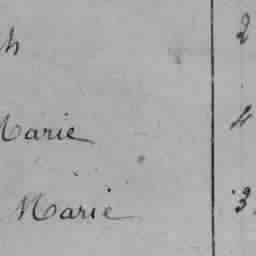 h 2
Marie 4
Marie 3